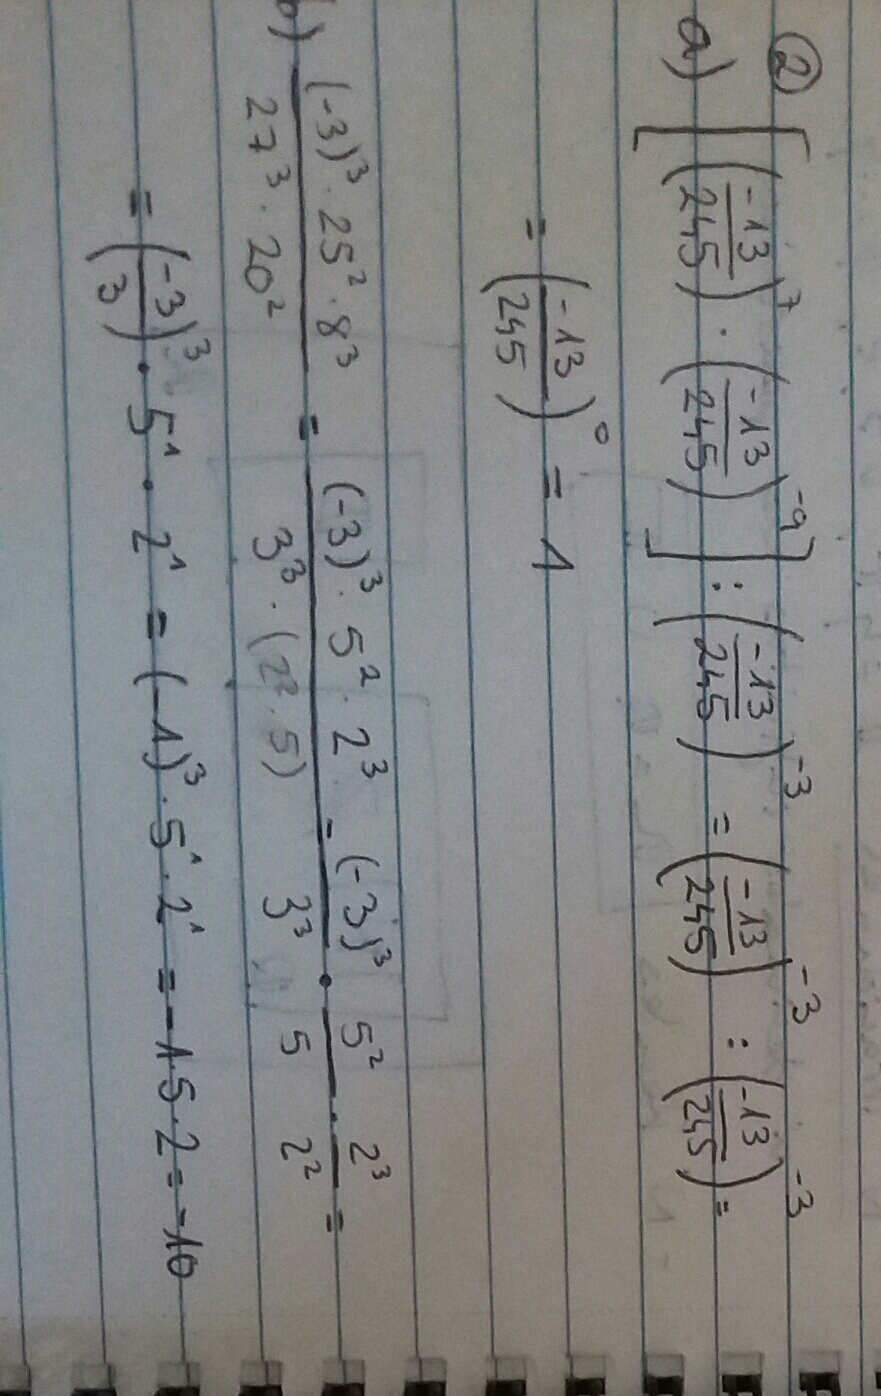 ②
a) [(-13/245)^7 · (-13/245)^-9] : (-13/245)^-3 = (-13/245)^-3 : (-13/245)^-3 =
= (-13/245)^0 = 1
b) (-3)^3 · 25^2 · 8^3 / 27^3 · 20^2 = (-3)^3 · 5^2 · 2^3 / 3^3 · (2^2 · 5) = (-3)^3 / 3^3 · 5^2 / 5 · 2^3 / 2^2 =
= (-3/3)^3 · 5^1 · 2^1 = (-1)^3 · 5^1 · 2^1 = -1·5·2 = -10